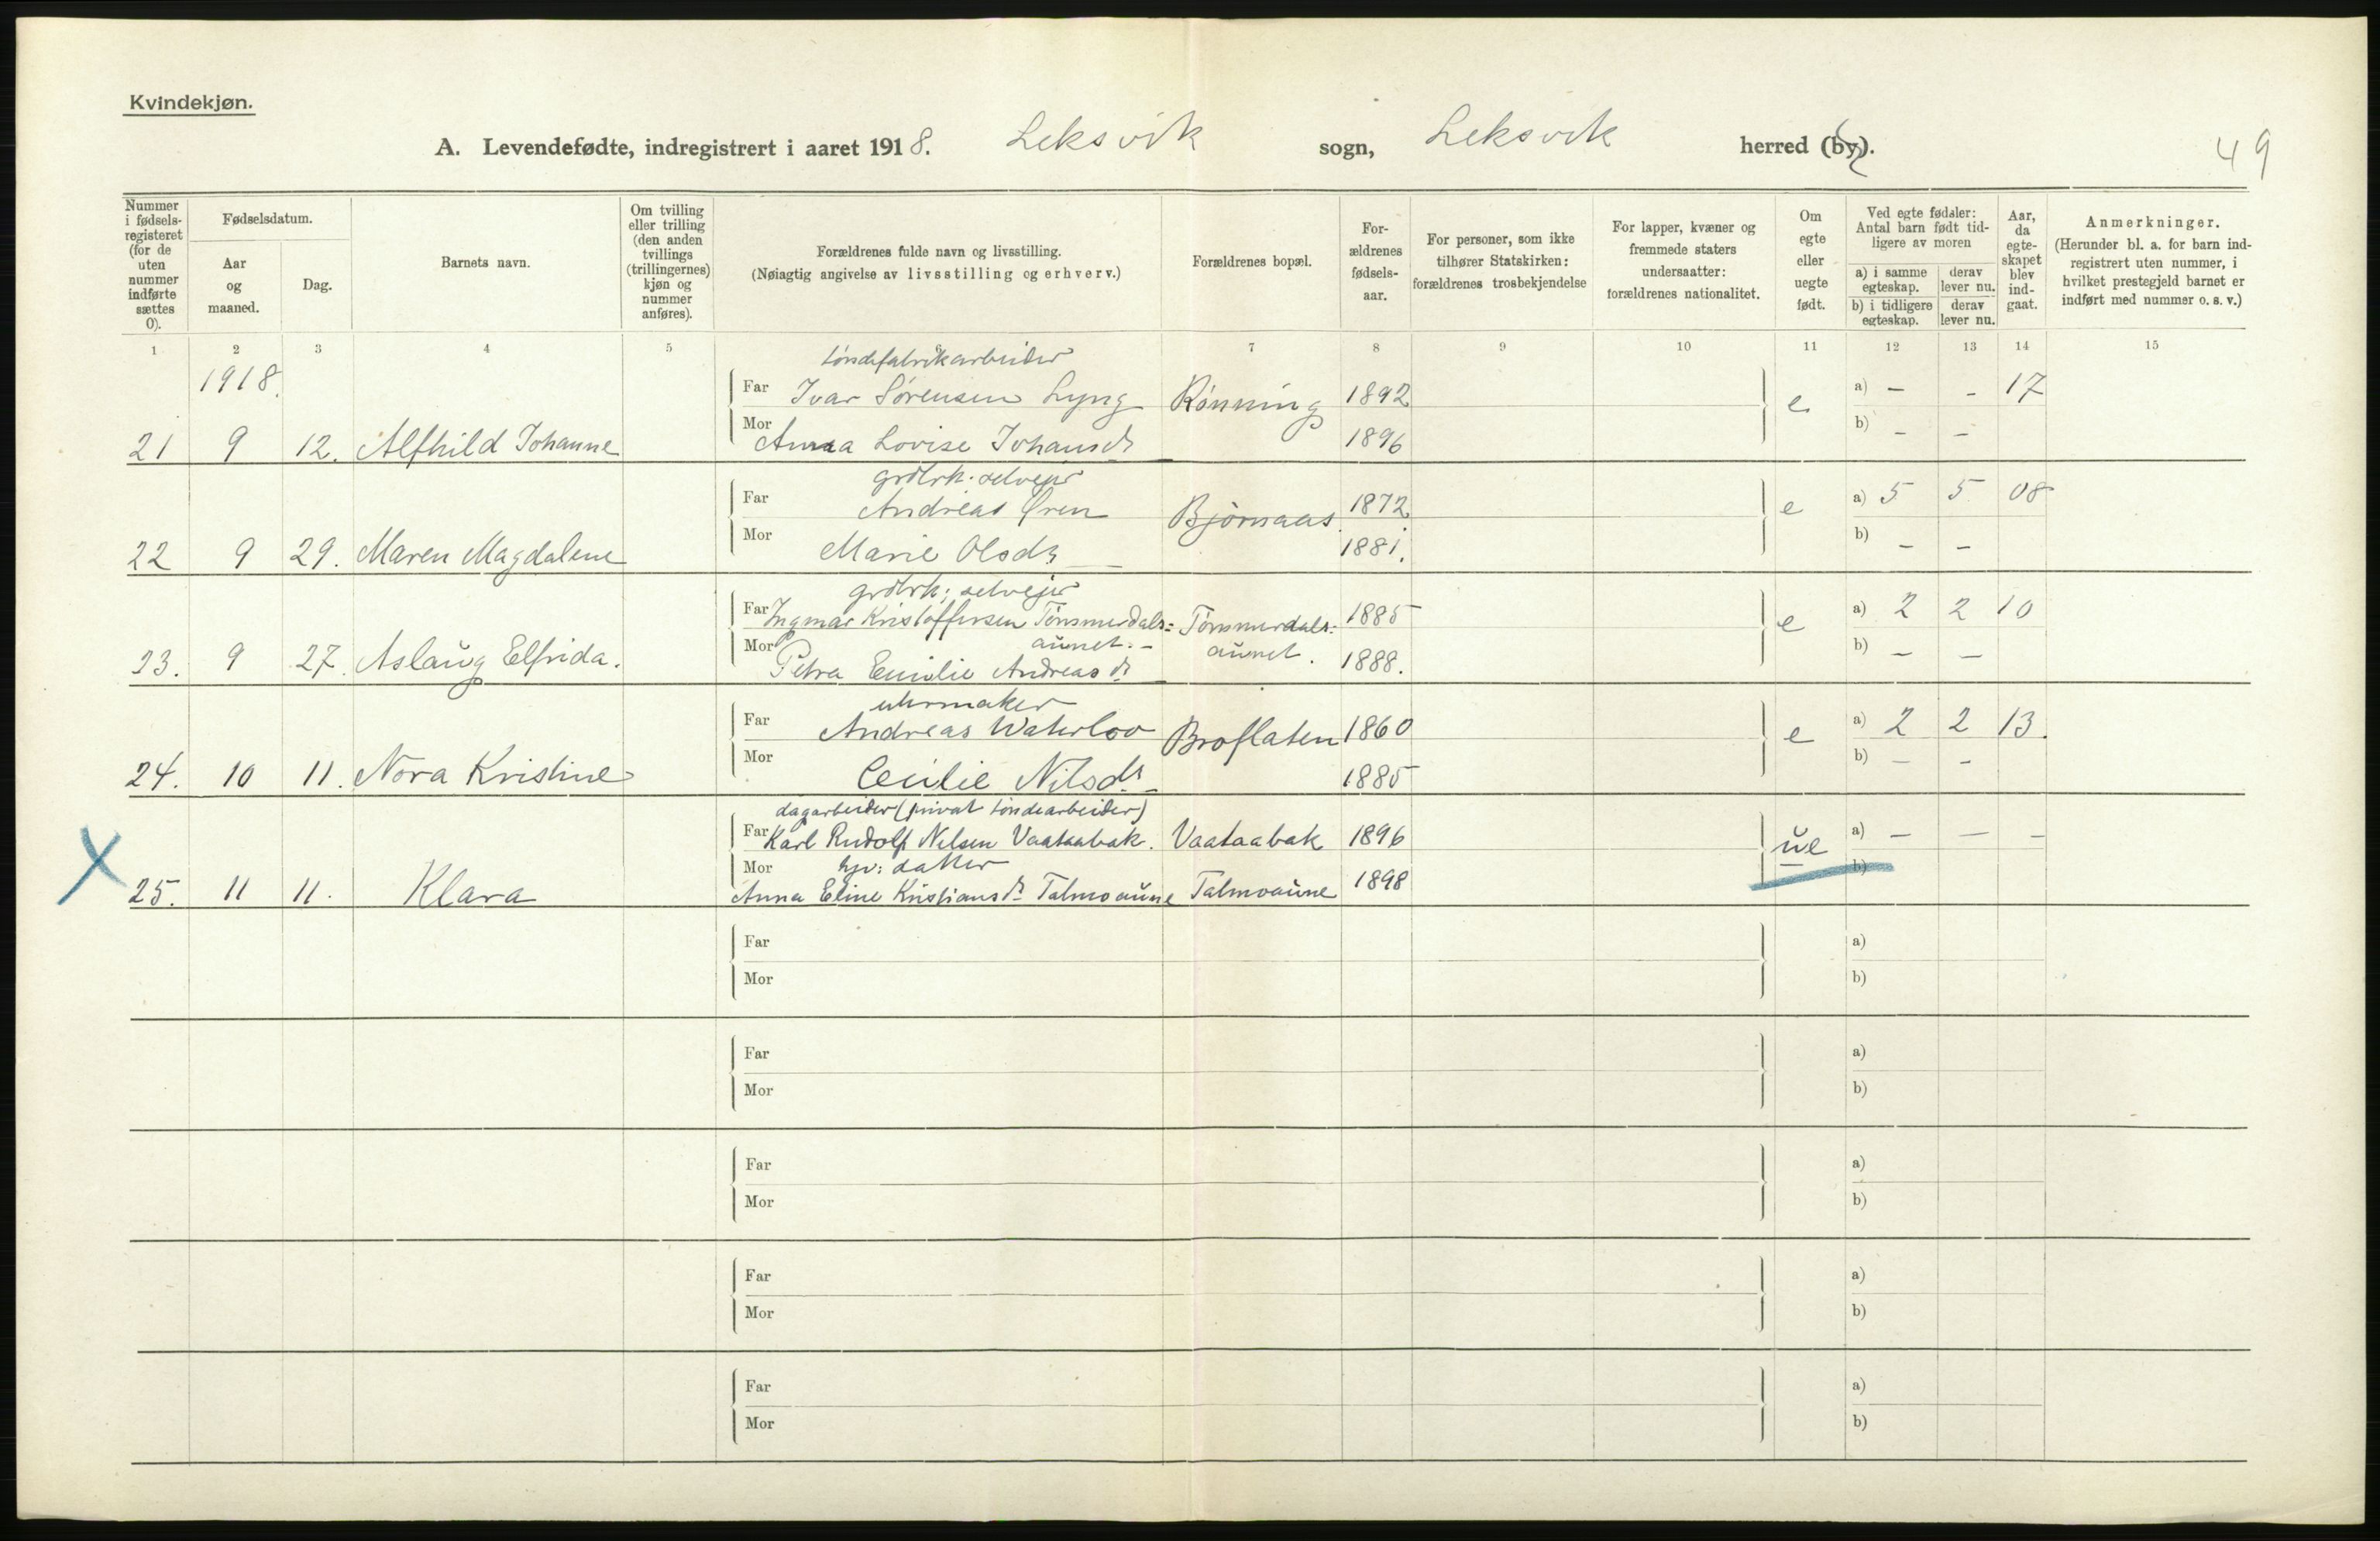 Kvindekjøn.
A. Levendefødte, indregistrert i aaret 1918. Leksvik sogn, Leksvik herred (by).
49
Nummer i fødselsregisteret (for de uten nummer indførte sættes 0).
Fødselsdatum.
Aar og maaned.
Dag.
Barnets navn.
Om tvilling eller trilling (den anden tvillings (trillingernes) kjøn og nummer anføres).
Forældrenes fulde navn og livsstilling.
(Nøiagtig angivelse av livsstilling og erhverv.)
Forældrenes bopæl.
Forældrenes fødselsaar.
For personer, som ikke tilhører Statskirken: forældrenes trosbekjendelse
For lapper, kvæner og fremmede staters undersaatter: forældrenes nationalitet.
Om egte eller uegte født.
Ved egte fødsler: Antal barn født tidligere av moren
a) i samme egteskap. derav lever nu.
b) i tidligere egteskap. derav lever nu.
Aar, da egteskapet blev indgaat.
Anmerkninger.
(Herunder bl. a. for barn indregistrert uten nummer, i hvilket prestegjeld barnet er indført med nummer o. s. v.)
1 2 3 4 5 6 7 8 9 10 11 12 13 14 15
1918.
tøndefabrikarbeider
Far Ivar Sørensen Lyng Rønning 1892 e a) – - 17
21 9 12. Alfhild Johanne Mor Anna Lovise Johansdr 1896 b) – –
grdbrk. selveier
Far Andreas Øren Bjørnaas 1872 e a) 5 5 08
22 9 29. Maren Magdalene Mor Marie Olsdr 1881. b) – –
grdbrk; selveier
Far Ingmar Kristoffersen Tømmerdals= Tømmerdals= 1885 e a) 2 2 10
aunet.- aunet.
23. 9 27. Aslaug Elfrida. Mor Petra Emilie Andreasdr 1888. b) – –
uhrmaker
Far Andreas Waterloo Broflaten 1860 e a) 2 2 13.
24. 10 11. Nora Kristine Mor Cecilie Nilsdr 1885 b) – -
dagarbeider (privat tøndearbeider)
Far Karl Rudolf Nilsen Vaataabak. Vaataabak 1896 ue a) – – –
Mor hjv: datter b)
X 25. 11 11. Klara Anna Eline Kristiansdr Talmoaune Talmoaune 1898
Far a)
Mor b)
Far a)
Mor b)
Far a)
Mor b)
Far a)
Mor b)
Far a)
Mor b)